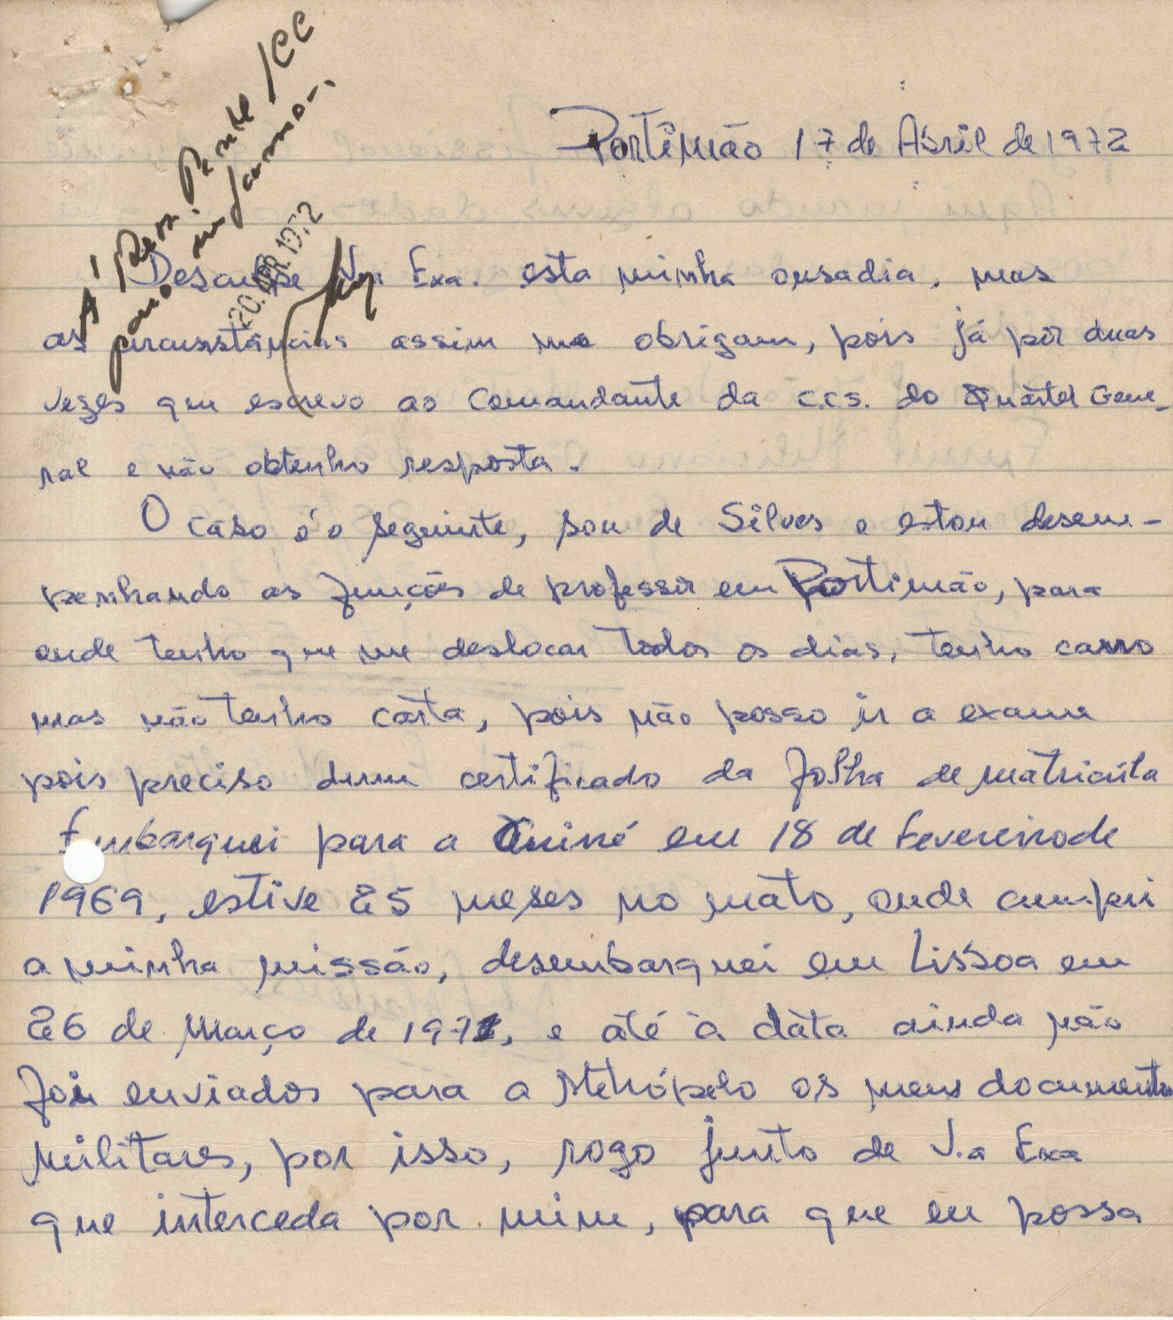 À Rep. Perm/CC
para informar.
20. ABR 1972
Portimão 17 de Abril de 1972
Desculpe V. Exa. esta minha ousadia, mas
as circunstâncias assim me obrigam, pois já por duas
vezes que escrevo ao Comandante da C.C.S. do Quartel Gene-
ral e não obtenho resposta.
O caso é o seguinte, sou de Silves e estou desem-
penhando as funções de professor em Portimão, para
onde tenho que me deslocar todos os dias, tenho carro
mas não tenho carta, pois não posso ir a exame
pois preciso dum certificado da folha de matricúla
Embarquei para a Guiné em 18 de Fevereiro de
1969, estive 25 meses no mato, onde cumpri
a minha missão, desembarquei em Lisboa em
26 de Março de 1971, e até à dàta ainda não
foi enviados para a Metrópelo os meus documentos
militares, por isso, rogo junto de V.a Exa
que interceda por mim, para que eu possa